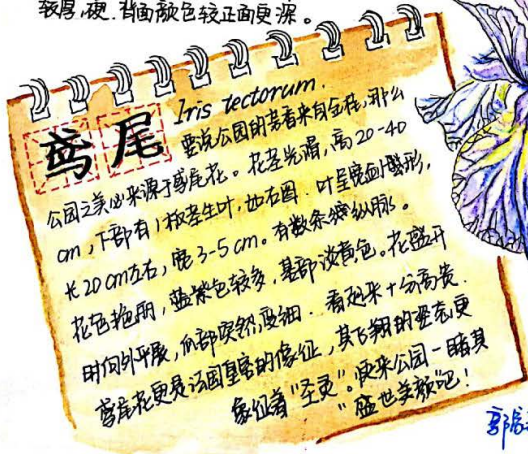 较厚,硬.背面颜色较正面更深。
鸢尾 Iris tectorum.
要说公园的芳香来自金桂,那么
公园之美必来源于鸢尾花。花茎光滑,高20-40
cm,下部有1枚茎生叶,如右图.叶呈宽剑形,
长20cm左右,宽3-5cm。有数条纵脉。
花色艳丽,蓝紫色较多,基部淡黄色。花盛开
时向外平展,爪部突然变细.看起来十分高贵.
鸢尾花更是法国皇室的像征,其飞翔的姿态更
象征着"圣灵"。快来公园一睹其
"盛世美颜"吧!
郭